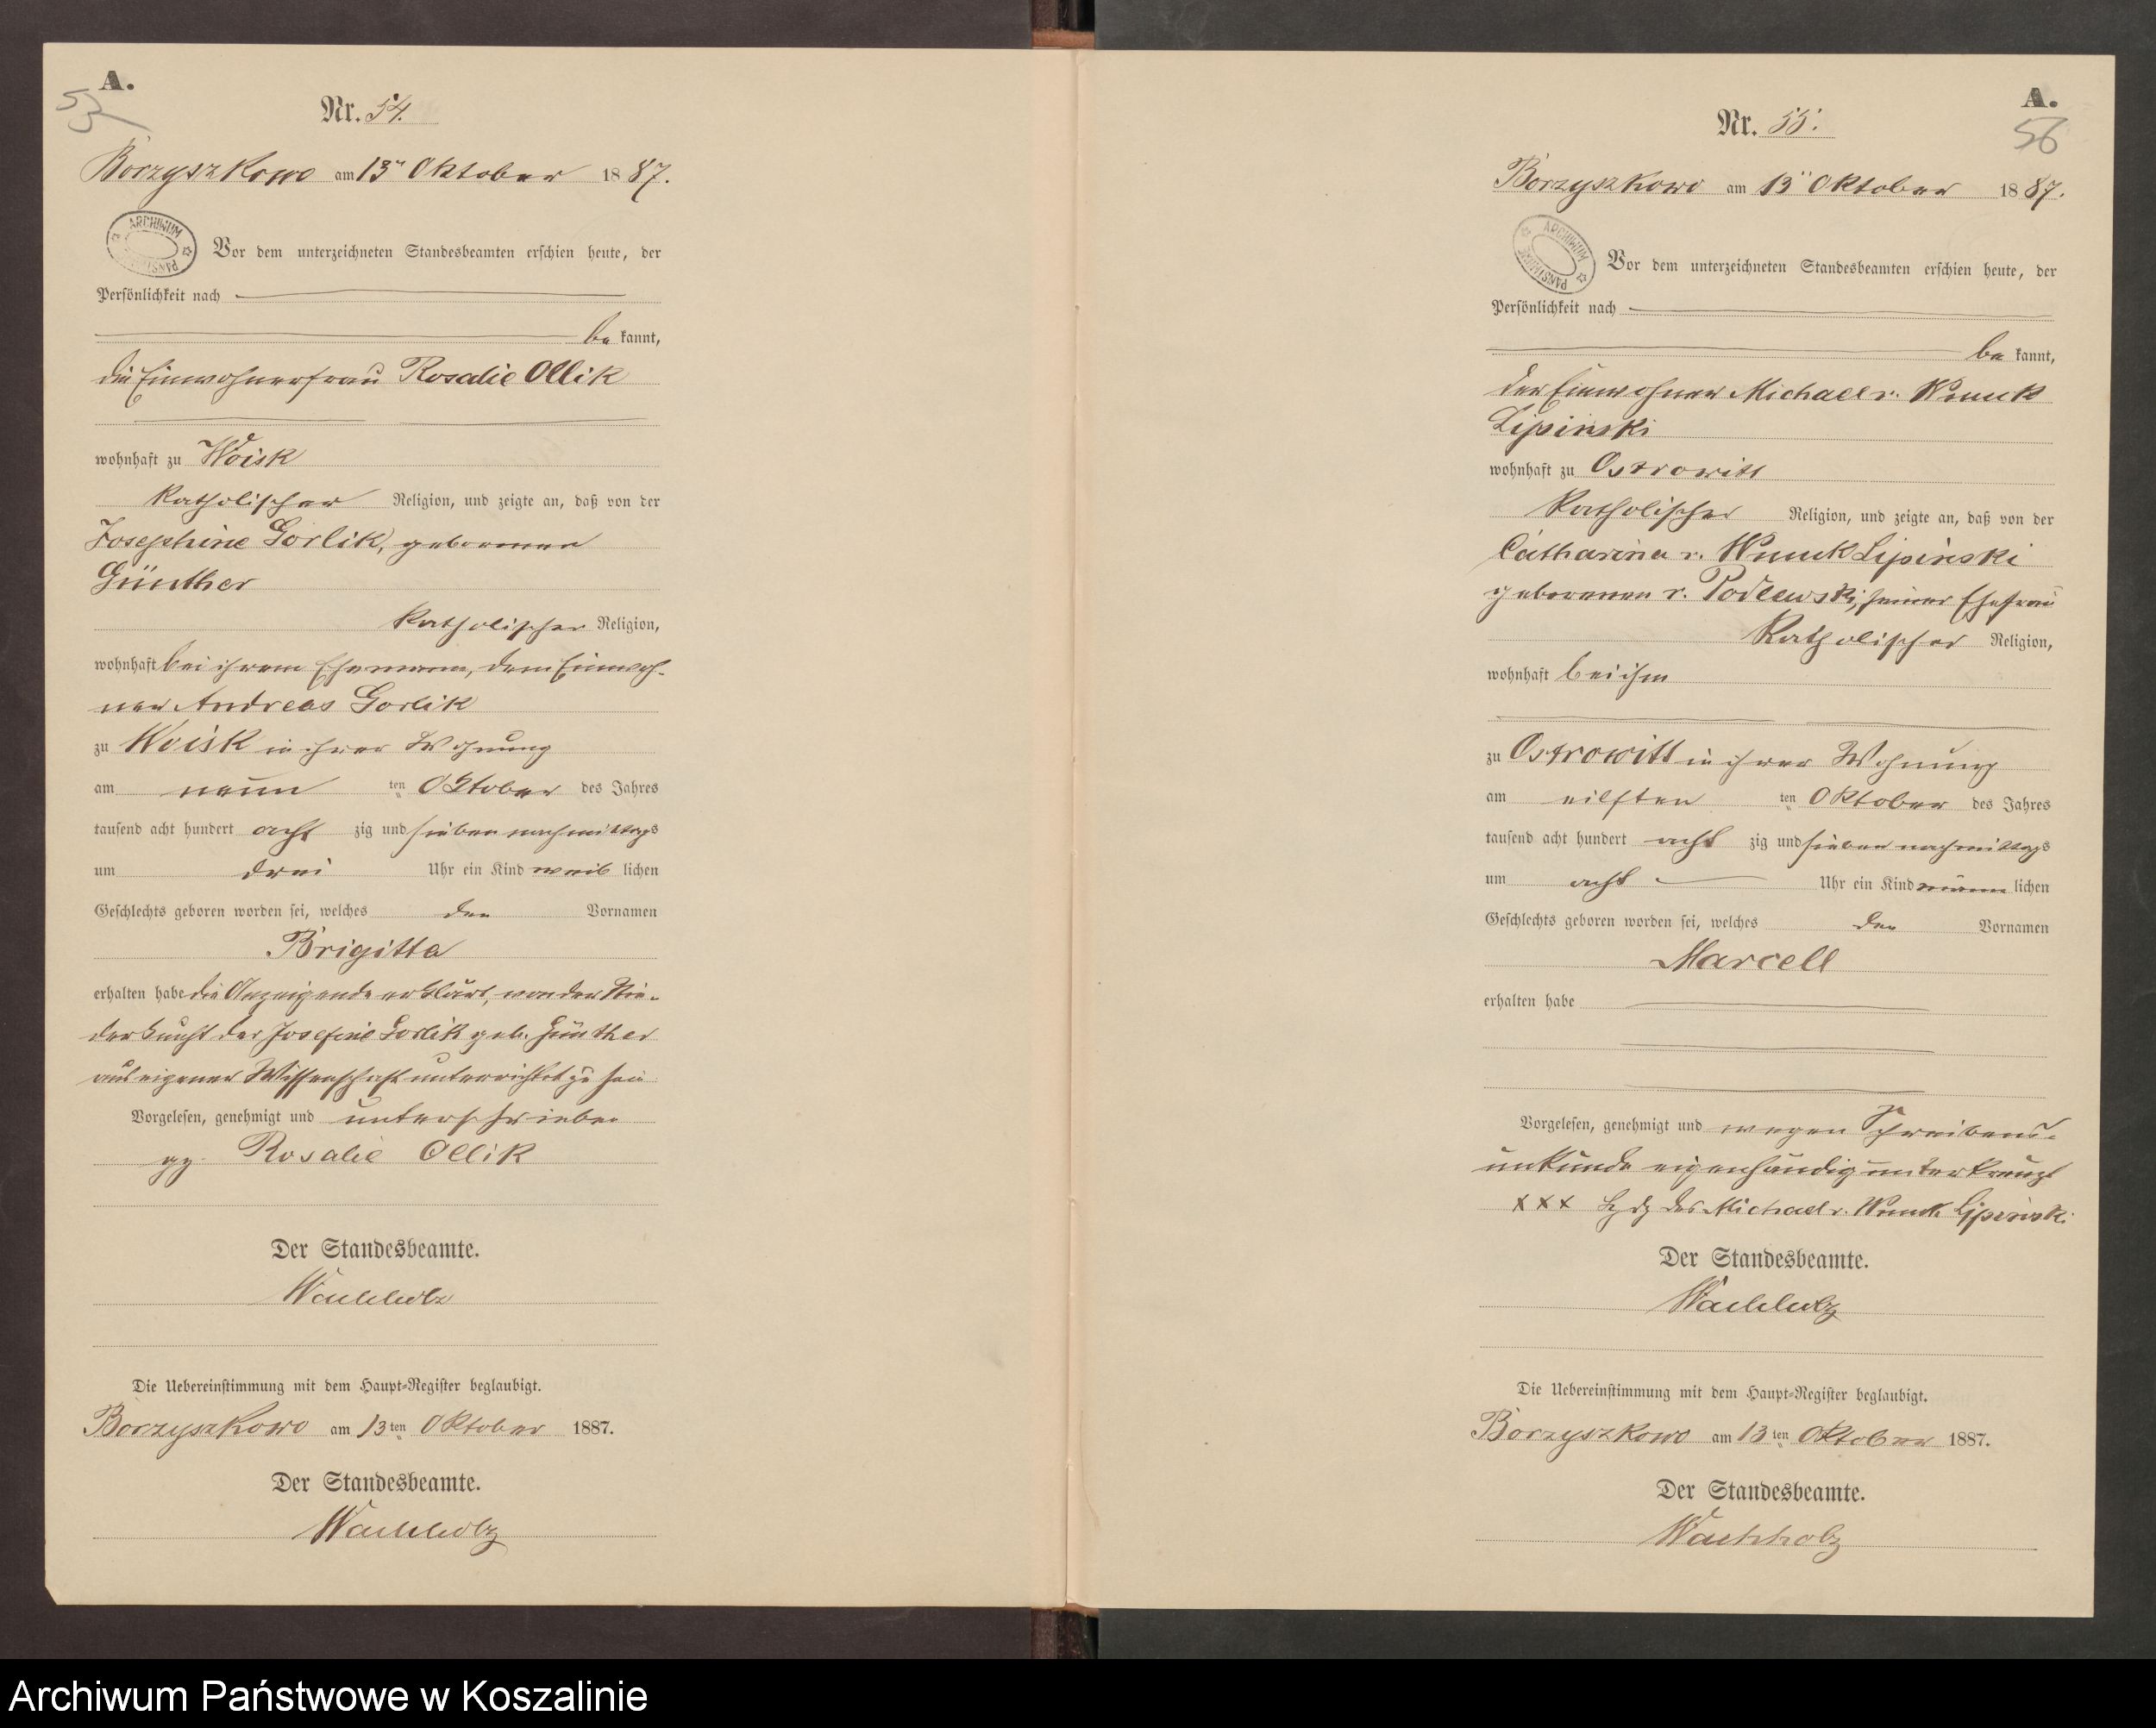 A.
53
Nr. 54.
Borzyszkowo am 13ten Oktober 1887.
ARCHIWUM PAŃSTWOWE
Vor dem unterzeichneten Standesbeamten erschien heute, der
Persönlichkeit nach
bekannt,
die Einwohnerfrau Rosalie Ollik
wohnhaft zu Woisk
katholischer Religion, und zeigte an, daß von der
Josephine Gorlik, geborenen
Günther
katholischer Religion,
wohnhaft bei ihrem Ehemann, dem Einwoh-
ner Andreas Gorlik
zu Woisk in ihrer Wohnung
am neun ten Oktober des Jahres
tausend acht hundert acht zig und sieben nachmittags
um drei Uhr ein Kind weiblichen
Geschlechts geboren worden sei, welches den Vornamen
Brigitta
erhalten habe die Anzeigende erklärt, von der Nie-
derkunft der Josefine Gorlik geb. Günther
aus eigener Wissenschaft unterrichtet zu sein
Vorgelesen, genehmigt und unterschrieben
gz. Rosalie Ollik
Der Standesbeamte.
Wachholz
Die Uebereinstimmung mit dem Haupt-Register beglaubigt.
Borzyszkowo am 13ten Oktober 1887.
Der Standesbeamte.
Wachholz
A.
56
Nr. 55.
Borzyszkowo am 13ten Oktober 1887.
ARCHIWUM PAŃSTWOWE
Vor dem unterzeichneten Standesbeamten erschien heute, der
Persönlichkeit nach
bekannt,
der Einwohner Michael v. Wnuck
Lipinski
wohnhaft zu Ostrowitt
katholischer Religion, und zeigte an, daß von der
Catharina v. Wnuck Lipinski
geborenen v. Podlewski, seiner Ehefrau
katholischer Religion,
wohnhaft bei ihm
zu Ostrowitt in ihrer Wohnung
am eilften ten Oktober des Jahres
tausend acht hundert acht zig und sieben nachmittags
um acht Uhr ein Kind männlichen
Geschlechts geboren worden sei, welches den Vornamen
Marcell
erhalten habe
Vorgelesen, genehmigt und wegen Schreibens-
unkunde eigenhändig unterkreuzt
xxx Hdz des Michael v. Wnuck Lipinski
Der Standesbeamte.
Wachholz
Die Uebereinstimmung mit dem Haupt-Register beglaubigt.
Borzyszkowo am 13ten Oktober 1887.
Der Standesbeamte.
Wachholz
Archiwum Państwowe w Koszalinie